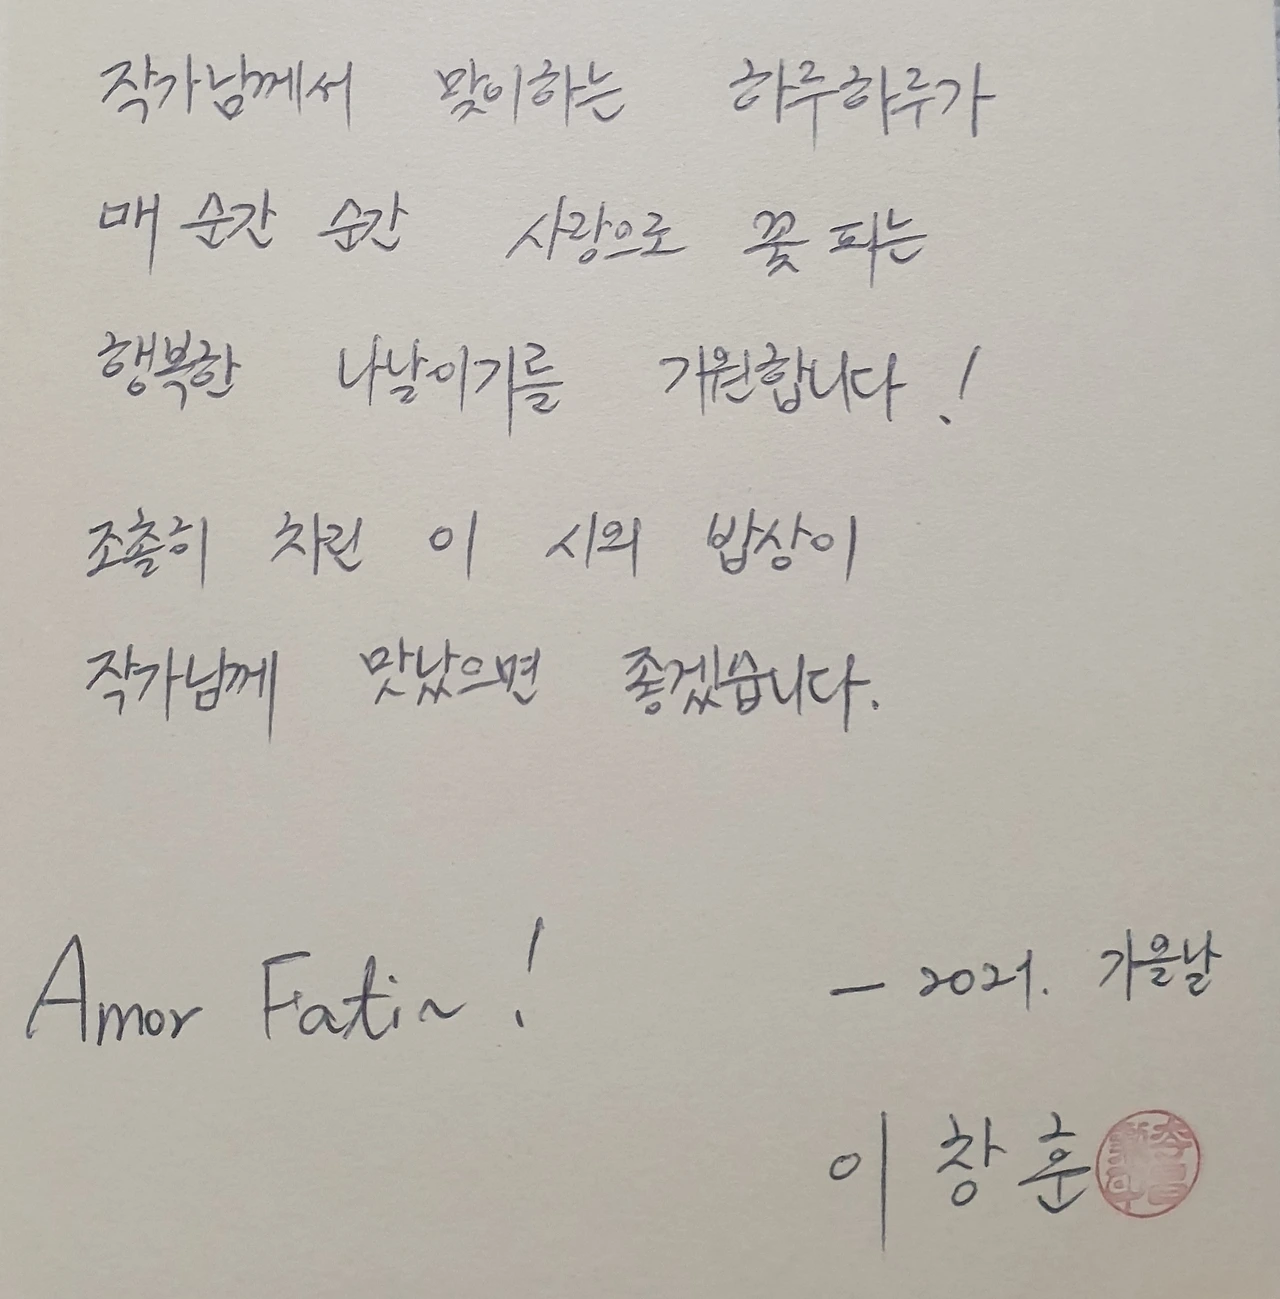 작가님께서 맞이하는 하루하루가
매 순간 순간 사랑으로 꽃 피는
행복한 나날이기를 기원합니다!
조촐히 차린 이 시의 밥상이
작가님께 맛났으면 좋겠습니다.
Amor Fati~!
- 2021. 가을날
이창훈